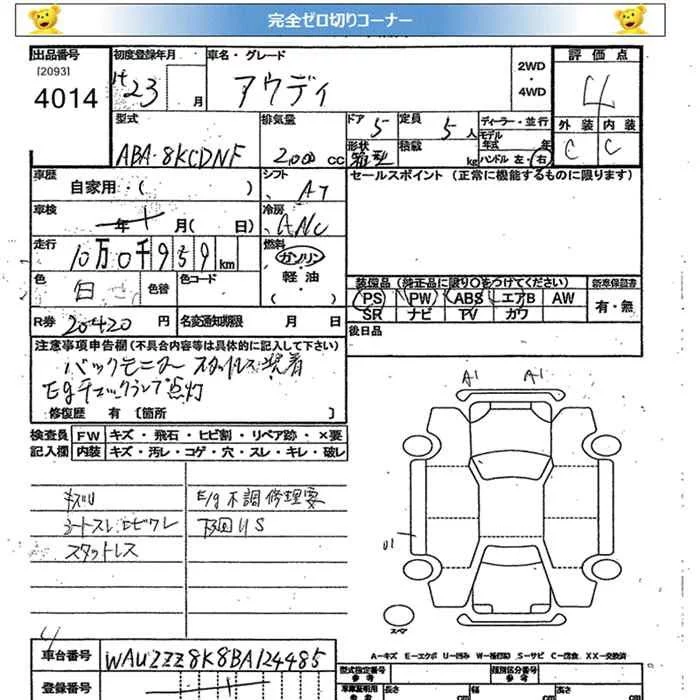 完全ゼロ切りコーナー
出品番号 初度登録年月 車名・グレード 評価点
[2093] 4014
H 23 月 アウディ 2WD・4WD 4
型式 排気量 ドア 5 定員 5人 ディーラー・並行 外装 内装
ABA-8KCDNF 2,000 CC 形状 箱型 積載 kg モデル年式 年 ハンドル 左・右 C C
車歴 シフト セールスポイント (正常に機能するものに限ります)
自家用・( ) AT
車検 年 月( 日) 冷房 AAC
走行 10万0千959km 燃料 ガソリン
軽油
( )
色 白 色替 色コード
装備品 (純正品に限り○をつけてください) 新車保証書
PS PW ABS エアB AW 有・無
SR ナビ TV カワ
R券 20420 円 名変通知期限 月 日 後日品
注意事項申告欄(不具合内容等は具体的に記入して下さい)
バックモニター スタットレス装着
Egチェックランプ点灯
修復歴 有 [箇所 ]
検査員 FW キズ・飛石・ヒビ割・リペア跡・×要
記入欄 内装 キズ・汚レ・コゲ・穴・スレ・キレ・破レ
キズU E/g不調修理要
シートスレヒビワレ 下回りS
スタットレス
A1 A1
U1
スペア
A-キズ E-エクボ U-凹み W-補修跡 S-サビ C-腐食 XX-交換済
4
車台番号 WAUZZZ8K8BA124485
登録番号
型式指定番号 参考 類別区分番号 参考
車庫証明用 参考 長さ cm 幅 cm 高さ cm